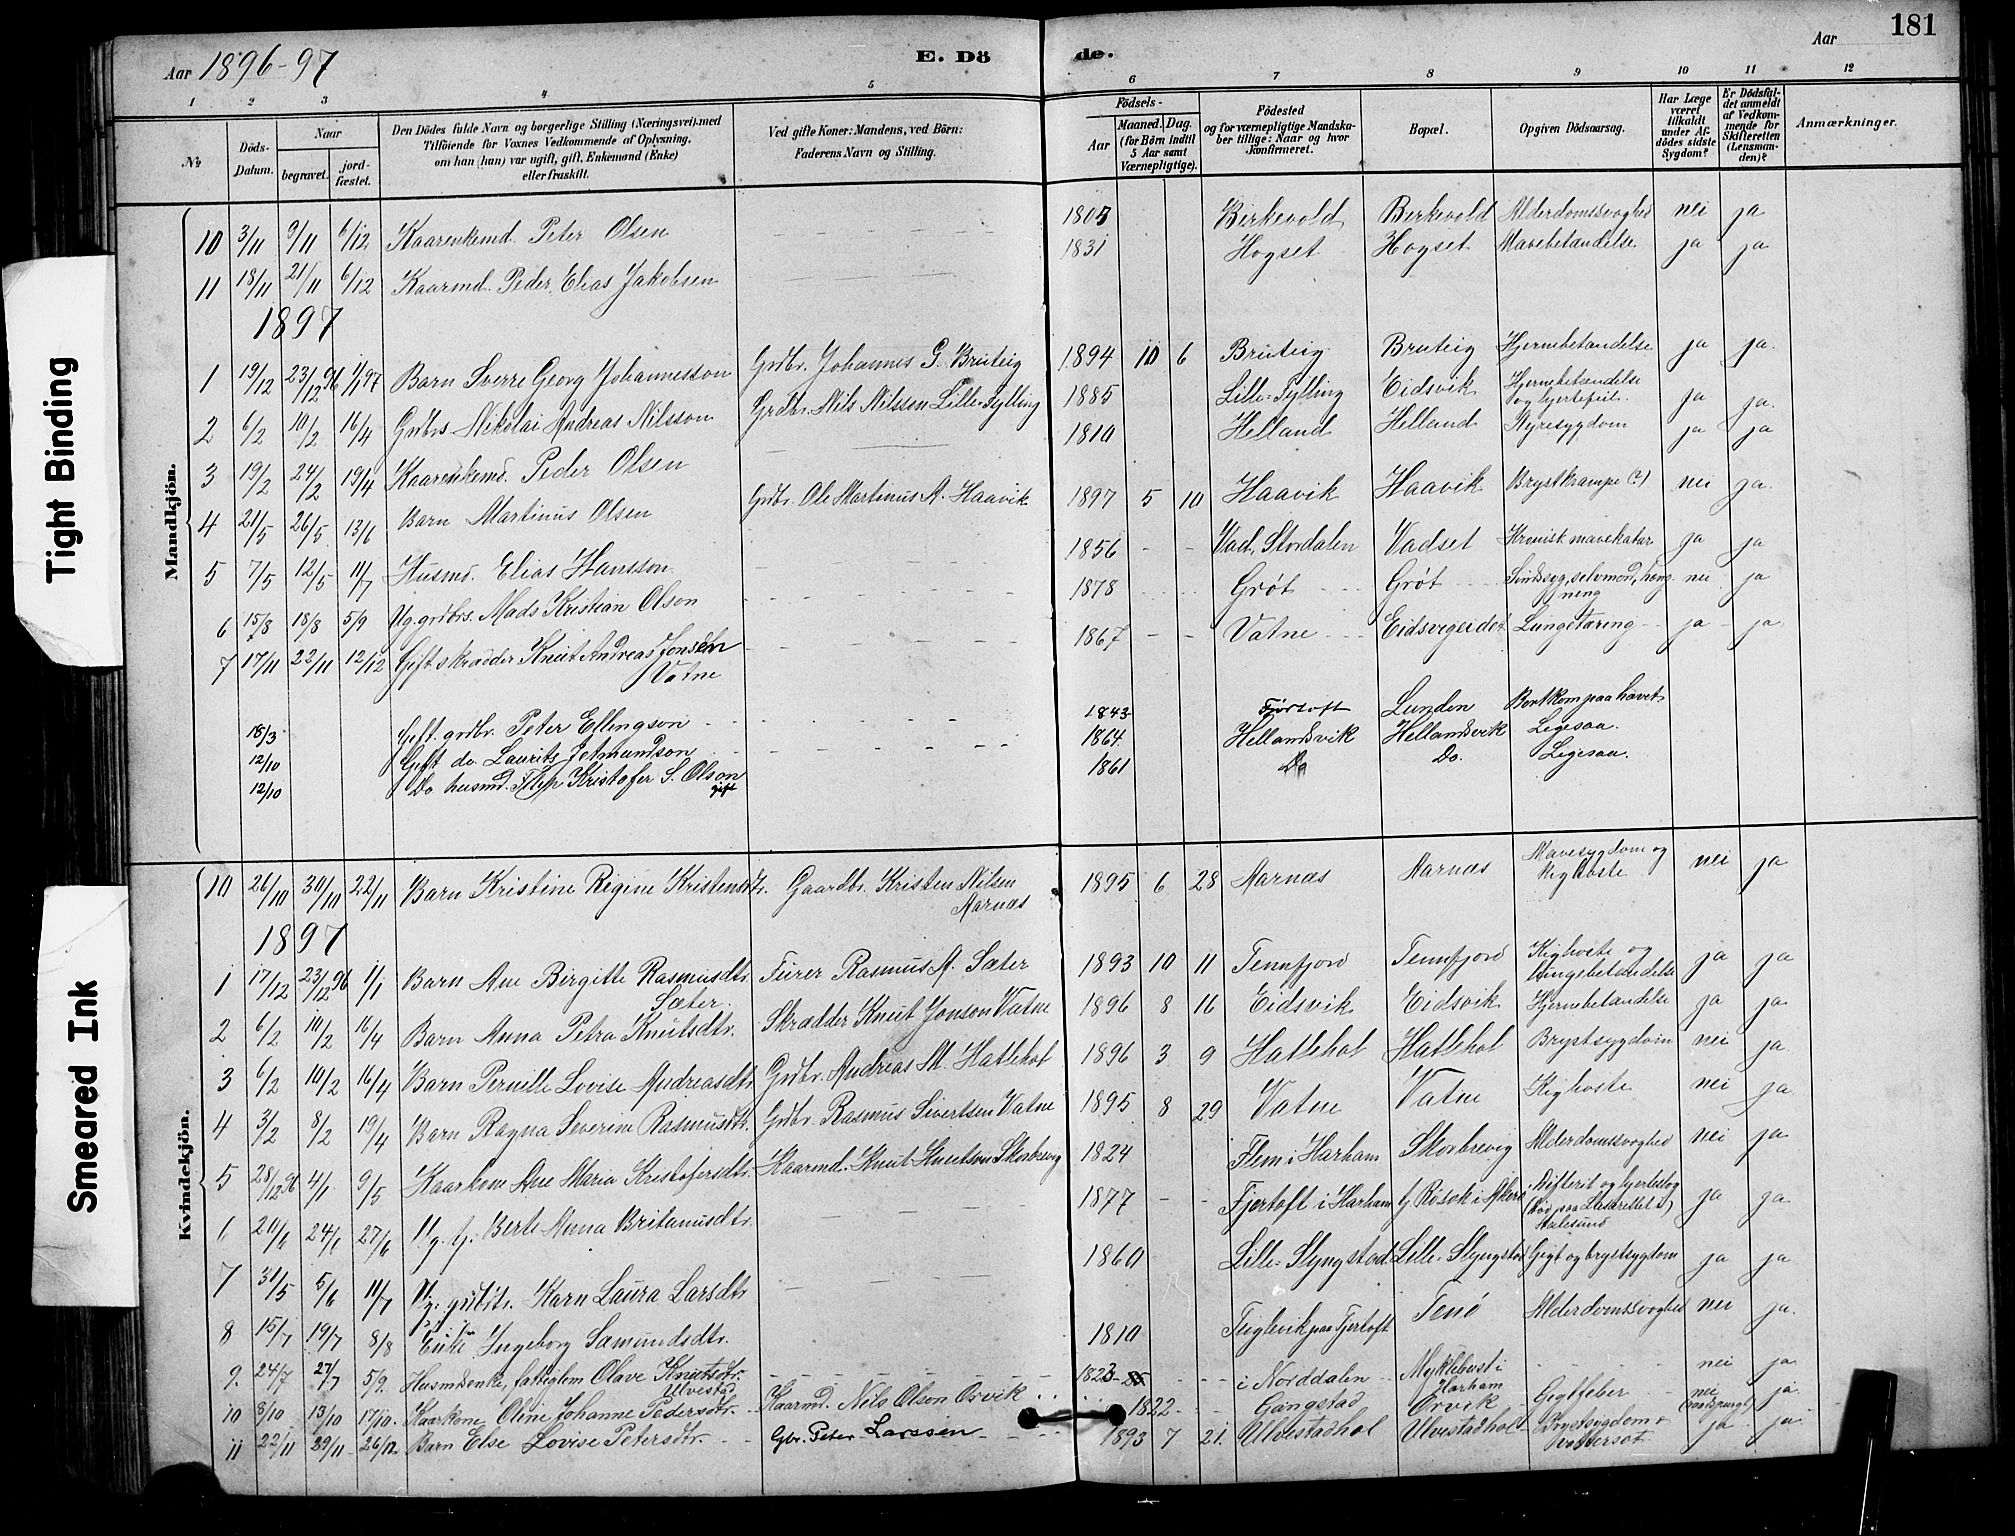 Tight Binding
Smeared Ink
Aar 1896-97
E. Dö
de.
Aar
181
1 2 3 4 5 6 7 8 9 10 11 12
No
Döds-Datum.
Naar
begravet.
jord-fæstet.
Den Dödes fulde Navn og borgerlige Stilling (Næringsvei) med
Tilföiende for Voxnes Vedkommende af Oplysning,
om han (hun) var ugift, gift, Enkemand (Enke)
eller fraskilt.
Ved gifte Koner: Mandens, ved Börn:
Faderens Navn og Stilling.
Födsels-
Aar
Maaned. Dag.
(for Börn indtil
5 Aar samt
Værnepligtige).
Födested
og for værnepligtige Mandska-
ber tillige: Naar og hvor
konfirmeret.
Bopæl.
Opgiven Dödsaarsag.
Har Læge
været
tilkaldt
under Af-
dödes sidste
Sygdom?
Er Dödsfal-
det anmeldt
af Vedkom-
mende for
Skifteretten
(Lensman-
den)?
Anmærkninger.
Mandkjön.
10 3/11 9/11 6/12 Kaarenkemd. Peter Olsen 1805 Birkevold Birkevold Alderdomssvaghed nei ja
11 18/11 21/11 6/12 Kaarmd. Peder Elias Jakobsen 1831 Hogset Hogset Mavebetændelse ja ja
1897
1 19/12 23/12 96 1/1 97 Barn Sverre Georg Johannesson Grdbr. Johannes G. Bruteig 1894 10 6 Bruteig Bruteig Hjernebetændelse ja ja.
2 6/2 10/2 16/4 Grdbrs. Nikolai Andreas Nilsson Grdbr. Nils Nilssen Lille-Fylling 1885 Lille-Fylling Eidsvik Hjernebetændelse og hjertefeil. ja ja.
3 19/2 24/2 19/4 Kaarenkemd. Peder Olsen 1810 Helland Helland Nyresygdom ja ja
4 21/5 26/5 13/6 Barn Martinus Olsen Grdbr. Ole Martinus A. Haavik 1897 5 10 Haavik Haavik Brystkrampe (?) nei ja.
5 7/5 12/5 11/7 Husmd. Elias Hansson 1856 - - Vad, Stordalen Vadset Kronisk mavekatar ja ja
6 15/8 18/8 5/9 Ug. grdbrs. Mads Kristian Olson 1878 Grøt Grøt Sindssyg, selvmord, hængning nei ja
7 17/11 22/11 12/12 Gift skrædder Knut Andreas Jonsen Vatne 1867 - - Vatne Eidsvigeidet Lungetæring ja ja
18/3 Gift grdbr. Peter Ellingson 1843 Fjørtoft Lunden Bortkom paa havet
12/10 Gift do. Laurits Jetmundson 1864 Hellandsvik Hellandsvik Ligesaa.
12/10 Do husmd. Filip Kristofer S. Olson gift 1861 Do Do. Ligesaa.
Kvindekjön.
10 26/10 30/10 22/11 Barn Kristine Regine Kristensdtr. Gaardbr. Kristen Nilsen Aarnæs 1895 6 28 Aarnæs Aarnæs Mavesygdom og Kighoste nei ja
1897
1 17/12 23/12 96 1/1 Barn Ane Birgitte Rasmusdtr. Sæter. Rasmus A. Sæter 1893 10 11 Tennfjord Tennfjord Kighoste og lungebetændelse ja ja
2 6/2 10/2 16/4 Barn Anna Petra Knutsdtr. Skrædder Knut Jonson Vatne 1896 8 16 Eidsvik Eidsvik Hjernebetændelse ja ja
3 6/2 10/2 16/4 Barn Pernille Lovise Andreasdtr. Grdbr. Andreas M. Hatlehol 1896 3 9 Hatlehol Hatlehol Brystsygdom nei ja
4 3/2 8/2 19/4 Barn Ragna Severine Rasmusdtr. Grdbr. Rasmus Sivertsen Vatne 1895 8 29 Vatne Vatne Kighoste nei ja
5 28/12 96 4/1 9/5 Kaarkone Ane Maria Kristofersdtr. Kaarmd. Knut Knutsen Skorbrevig 1824 Flem i Harham Skorbrevig Alderdomssvaghed nei ja
6 20/1 24/1 27/6 Ug. Berte Anna Britanusdtr. 1877 - - Fjertoft i Harham Difterit og hjerteslag (død paa Lasarettet i Aalesund) ja ja.
7 31/5 5/6 11/7 Ug. Karn Laura Larsdtr 1860 Lille-Slyngstad Lille-Slyngstad Gigt og brystsygdom ja ja
8 15/7 19/7 8/8 Enke Ingeborg Samundsdtr. 1810 Fjertoft Tenø Alderdomssvaghed nei ja.
9. 24/7 27/7 5/9. Husmdsenke, fattiglem Olave Knutsdtr. Ulvestad 1823 i Norddalen Myklebust i Harham nei ja
10 8/10 13/10 17/10. Kaarkone Oline Johanne Pedersdtr. Kaarmd. Nils Olson Ørvik 1822 Gangstad Ørvik Gigtfeber nei ja
11 22/11 29/11 26/12 Barn Else Lovise Petersdtr. Gbr. Peter Larssen 1893 7 21. Ulvestadhol Ulvestadhol Brystsygdom + vattersot. ja ja